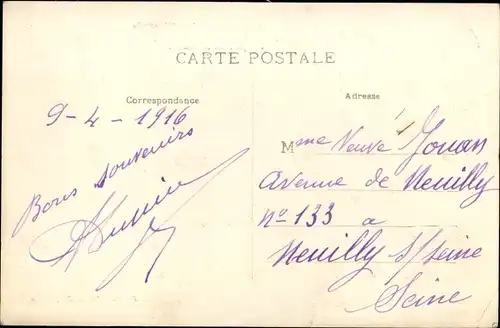 CARTE POSTALE
Correspondance
9-4-1916
Bons souvenirs
Adresse
Mme Veuve Jouan
Avenue de Neuilly
No 133 a
Neuilly s/seine
Seine